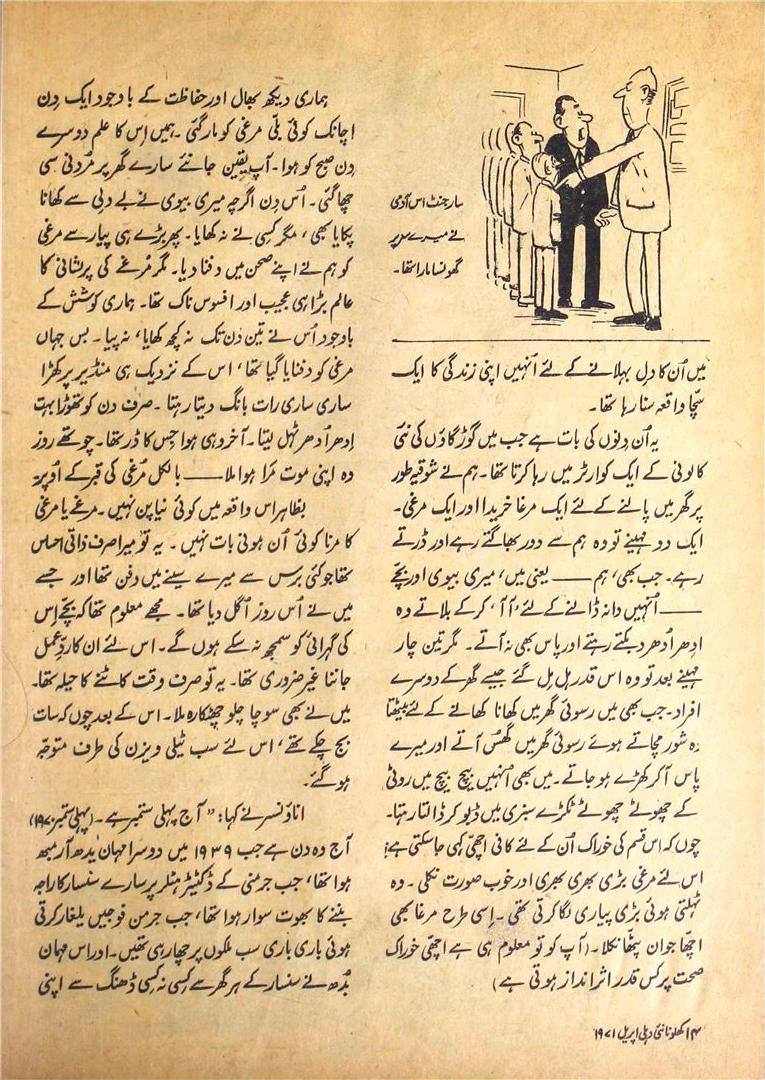 سارجنٹ اس آدمی
نے میرے سر پر
گھونسا مارا تھا۔
میں اُن کا دِل بہلانے کے لئے اُنہیں اپنی زندگی کا ایک
سچّا واقعہ سنا رہا تھا۔
یہ اُن دِنوں کی بات ہے جب میں گوڑ گاؤں کی نئی
کالونی کے ایک کوارٹر میں رہا کرتا تھا۔ ہم نے شوقیہ طور
پر گھر میں پالنے کے لئے ایک مرغا خریدا اور ایک مرغی۔
ایک دو مہینے تو وہ ہم سے دور بھاگتے رہے اور ڈرتے
رہے۔ جب بھی، ہم —— یعنی میں، میری بیوی اور بچّے
—— اُنہیں دانہ ڈالنے کے لئے ’آ آ‘ کر کے بلاتے وہ
اِدھر اُدھر دبکتے رہتے اور پاس بھی نہ آتے۔ مگر تین چار
مہینے بعد تو وہ اس قدر ہِل مِل گئے جیسے گھر کے دوسرے
افراد۔ جب بھی میں رسوئی گھر میں کھانا کھانے کے لئے بیٹھتا
وہ شور مچاتے ہوئے رسوئی گھر میں گھُس آتے اور میرے
پاس آ کر کھڑے ہو جاتے۔ میں بھی اُنہیں بیچ بیچ میں روٹی
کے چھوٹے چھوٹے ٹکڑے سبزی میں ڈبو کر ڈالتا رہتا۔
چوں کہ اس قسم کی خوراک اُن کے لئے کافی اچھّی کہی جا سکتی ہے،
اس لئے مرغی بڑی بھری بھری اور خوب صورت نکلی۔ وہ
ٹہلتی ہوئی بڑی پیاری لگا کرتی تھی۔ اِسی طرح مرغا بھی
اچھّا جوان پٹھّا نکلا۔ (آپ کو تو معلوم ہی ہے اچھّی خوراک
صحت پر کس قدر اثر انداز ہوتی ہے)
ہماری دیکھ بھال اور حفاظت کے باوجود ایک دِن
اچانک کوئی بلّی مرغی کو مار گئی۔ ہمیں اِس کا علم دوسرے
دِن صبح کو ہوا۔ آپ یقین جانئے سارے گھر پر مُردنی سی
چھا گئی۔ اُس دِن اگرچہ میری بیوی نے بے دلی سے کھانا
پکایا بھی، مگر کسی نے نہ کھایا۔ پھر بڑے ہی پیار سے مرغی
کو ہم نے اپنے صحن میں دفنا دیا۔ مگر مُرغے کی پریشانی کا
عالم بڑا ہی عجیب اور افسوس ناک تھا۔ ہماری کوشش کے
باوجود اُس نے تین دن تک نہ کچھ کھایا، نہ پیا۔ بس جہاں
مرغی کو دفنایا گیا تھا، اس کے نزدیک ہی منڈیر پر کھڑا
ساری ساری رات بانگ دیتا رہتا۔ صرف دن کو تھوڑا بہت
اِدھر اُدھر ٹہل لیتا۔ آخر وہی ہوا جس کا ڈر تھا۔ چوتھے روز
وہ اپنی موت مَرا ہوا ملا —— بالکل مُرغی کی قبر کے اُوپر!
بظاہر اس واقعہ میں کوئی نیا پن نہیں۔ مرغے یا مرغی
کا مرنا کوئی اَن ہونی بات نہیں۔ یہ تو میرا صرف ذاتی احساس
تھا جو کئی برس سے میرے سینے میں دفن تھا اور جسے
میں نے اُس روز اُگل دیا تھا۔ مجھے معلوم تھا کہ بچّے اِس
کی گہرائی کو سمجھ نہ سکے ہوں گے۔ اس لئے ان کا ردِّعمل
جاننا غیر ضروری تھا۔ یہ تو صرف وقت کاٹنے کا حیلہ تھا۔
میں نے بھی سوچا چلو چھٹکارہ ملا۔ اس کے بعد چوں کہ سات
بج چکے تھے، اس لئے سب ٹیلی ویزن کی طرف متوجّہ
ہو گئے۔
اناؤنسر نے کہا: ”آج پہلی ستمبر ہے۔ (پہلی ستمبر ۱۹۷۰)
آج وہ دن ہے جب ۱۹۳۹ میں دوسرا مہان یُدھ آرمبھ
ہوا تھا، جب جرمنی کے ڈکٹیٹر ہٹلر پر سارے سنسار کا راجہ
بننے کا بھوت سوار ہوا تھا، جب جرمن فوجیں یلغار کرتی
ہوئی باری باری سب ملکوں پر چھا رہی تھیں۔ اور اس مہان
یُدھ نے سنسار کے ہر گھر سے کسی نہ کسی ڈھنگ سے اپنی
۱۴ کھلونا نئی دہلی اپریل ۱۹۷۱